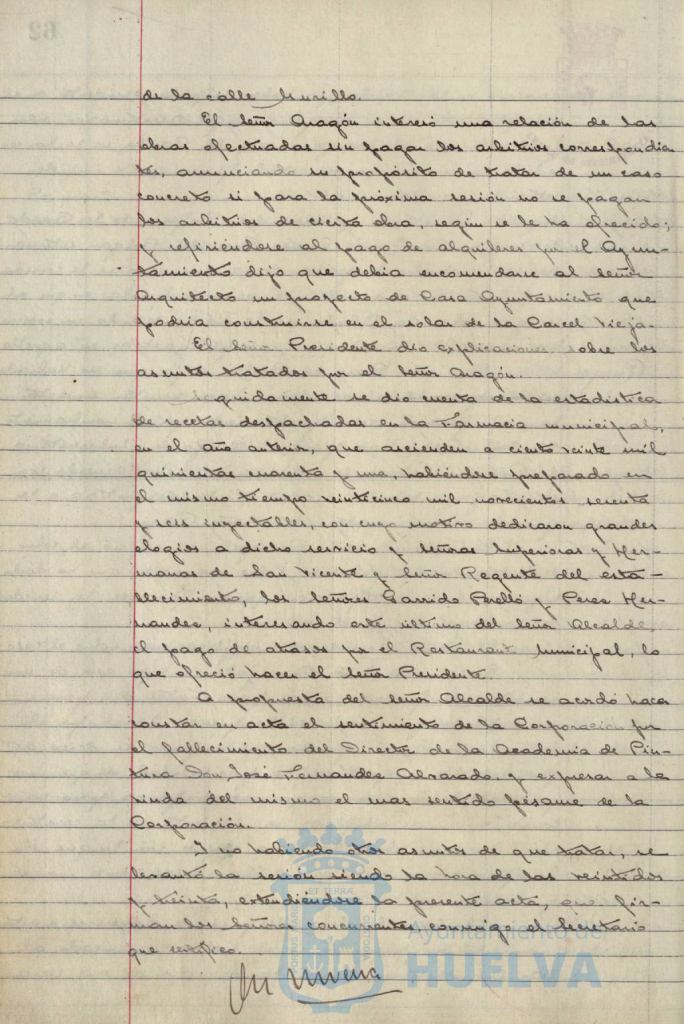 de la calle Murillo.
El Señor Aragón interesó una relación de las
obras efectuadas sin pagar los arbitrios correspondien
tes, anunciando su propósito de tratar de un caso
concreto si para la próxima sesión no se pagan
los arbitrios de cierta obra, según se le ha ofrecido;
y refiriéndose al pago de alquileres por el Ayun-
tamiento dijo que debía encomendarse al Señor
Arquitecto un proyecto de Casa Ayuntamiento que
podría construirse en el solar de la Carcel Vieja.
El Señor Presidente dió explicaciones sobre los
asuntos tratados por el Señor Aragón.
Seguidamente se dió cuenta de la estadística
de recetas despachadas en la Farmacia municipal,
en el año anterior, que ascienden a ciento veinte mil
quinientas cuarenta y una, habiéndose preparado en
el mismo tiempo veinticinco mil novecientos sesenta
y seis inyectables, con cuyo motivo dedicaron grandes
elogios a dicho servicio y Señoras Superioras y Her-
manas de San Vicente y Señor Regente del esta-
blecimiento, los Señores Garrido Perelló y Perez Her-
nandez, interesando este último del Señor Alcalde,
el pago de atrasos por el Restaurant Municipal, lo
que ofreció hacer el Señor Presidente.
A propuesta del Señor Alcalde se acordó hacer
constar en acta el sentimiento de la Corporación por
el fallecimiento del Director de la Academia de Pin-
tura Don José Fernandez Alvarado, y expresar a la
viuda del mismo el mas sentido pésame de la
Corporación.
Y no habiendo otros asuntos de que tratar, se
levantó la sesión siendo la hora de las veintidos
y treinta, extendiéndose la presente acta, que fir-
man los Señores concurrentes, conmigo el Secretario
que certifico.
Ayuntamiento de
HUELVA